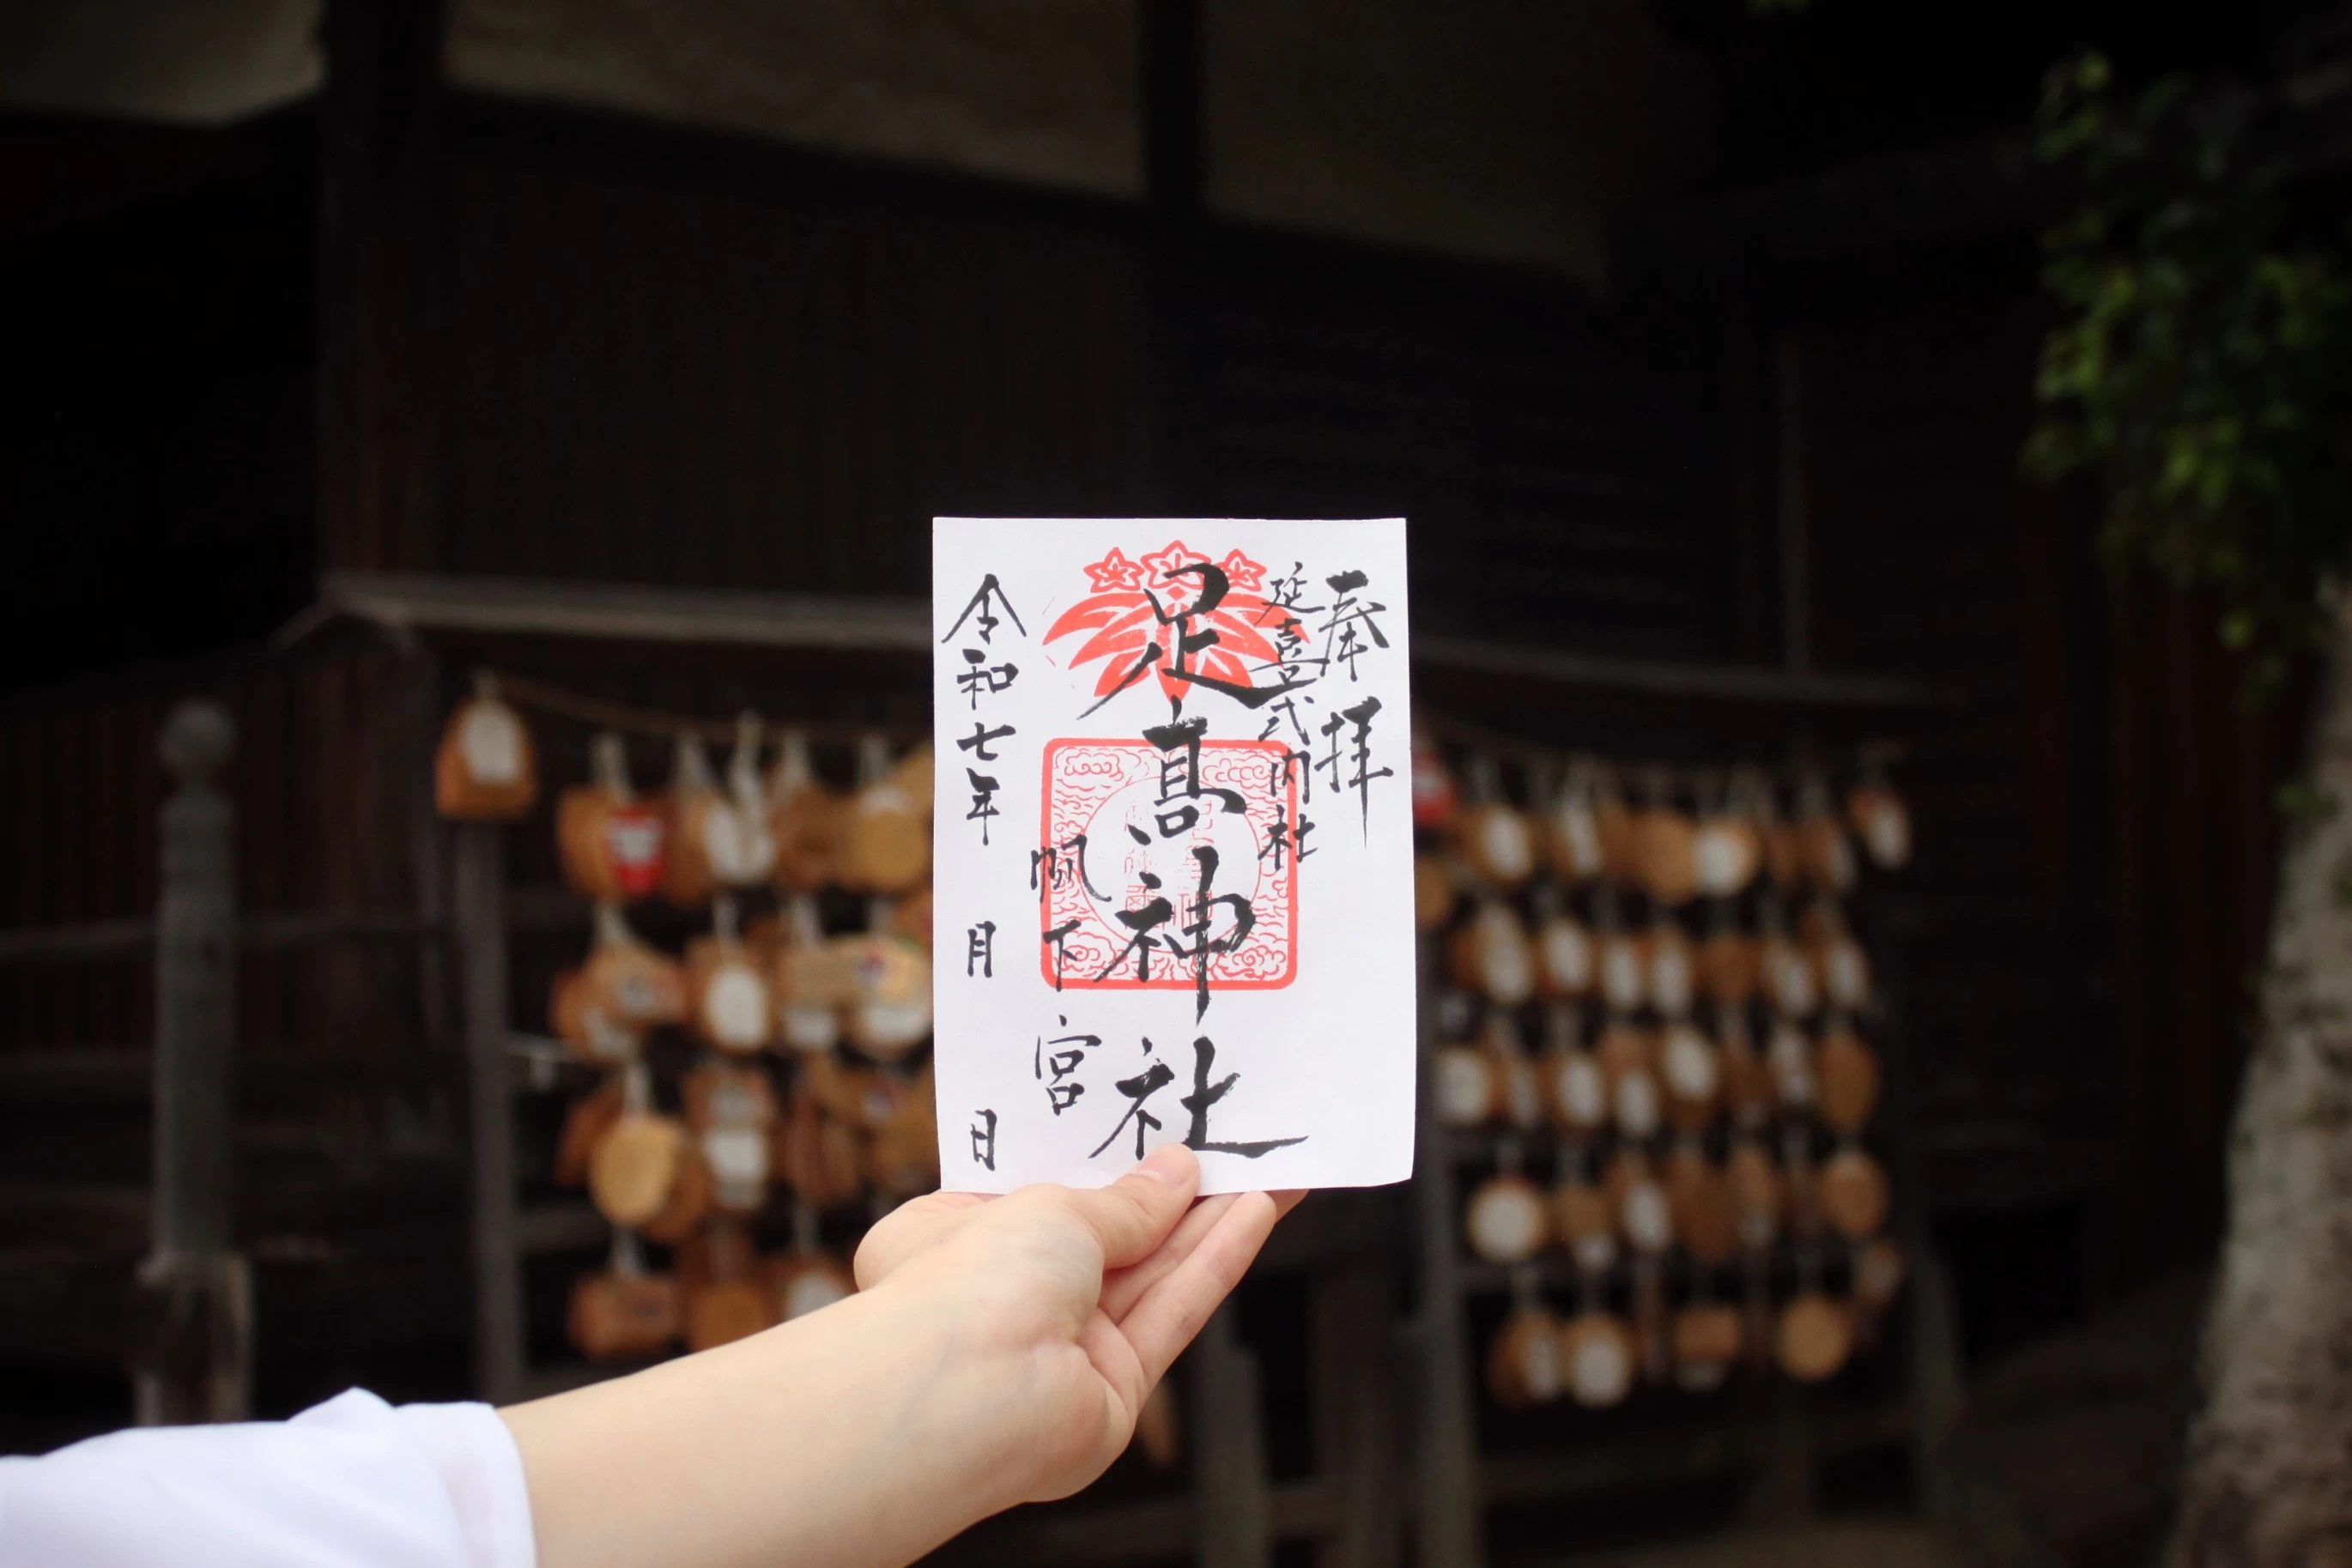 奉拝
延喜式内社
足髙神社
帆下宮
令和七年 月 日